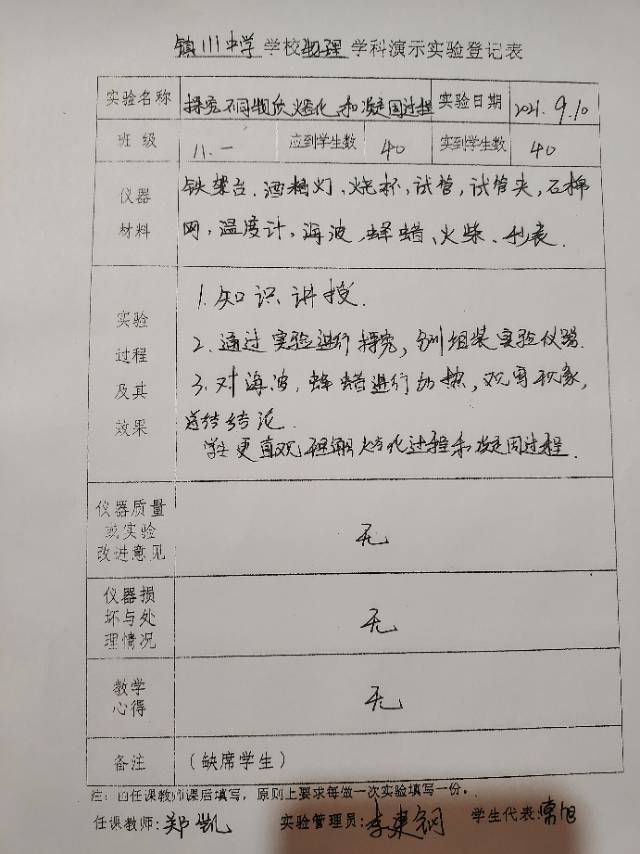 镇川中学学校物理学科演示实验登记表
实验名称 探究不同物质熔化和凝固过程 实验日期 2021.9.10
班级 八.一 应到学生数 40 实到学生数 40
仪器 铁架台、酒精灯、烧杯、试管、试管夹、石棉
材料 网、温度计、海波、蜂蜡、火柴、秒表.
实验 1.知识讲授.
过程 2.通过实验进行探究,组装实验仪器.
及其 3.对海波、蜂蜡进行加热,观察现象,
效果 总结结论.
学生更直观理解熔化过程和凝固过程.
仪器质量
或实验 无
改进意见
仪器损
坏与处 无
理情况
教学 无
心得
备注 (缺席学生)
注:由任课教师课后填写,原则上要求每做一次实验填写一份。
任课教师:郑凯 实验管理员:李建钢 学生代表:常旭